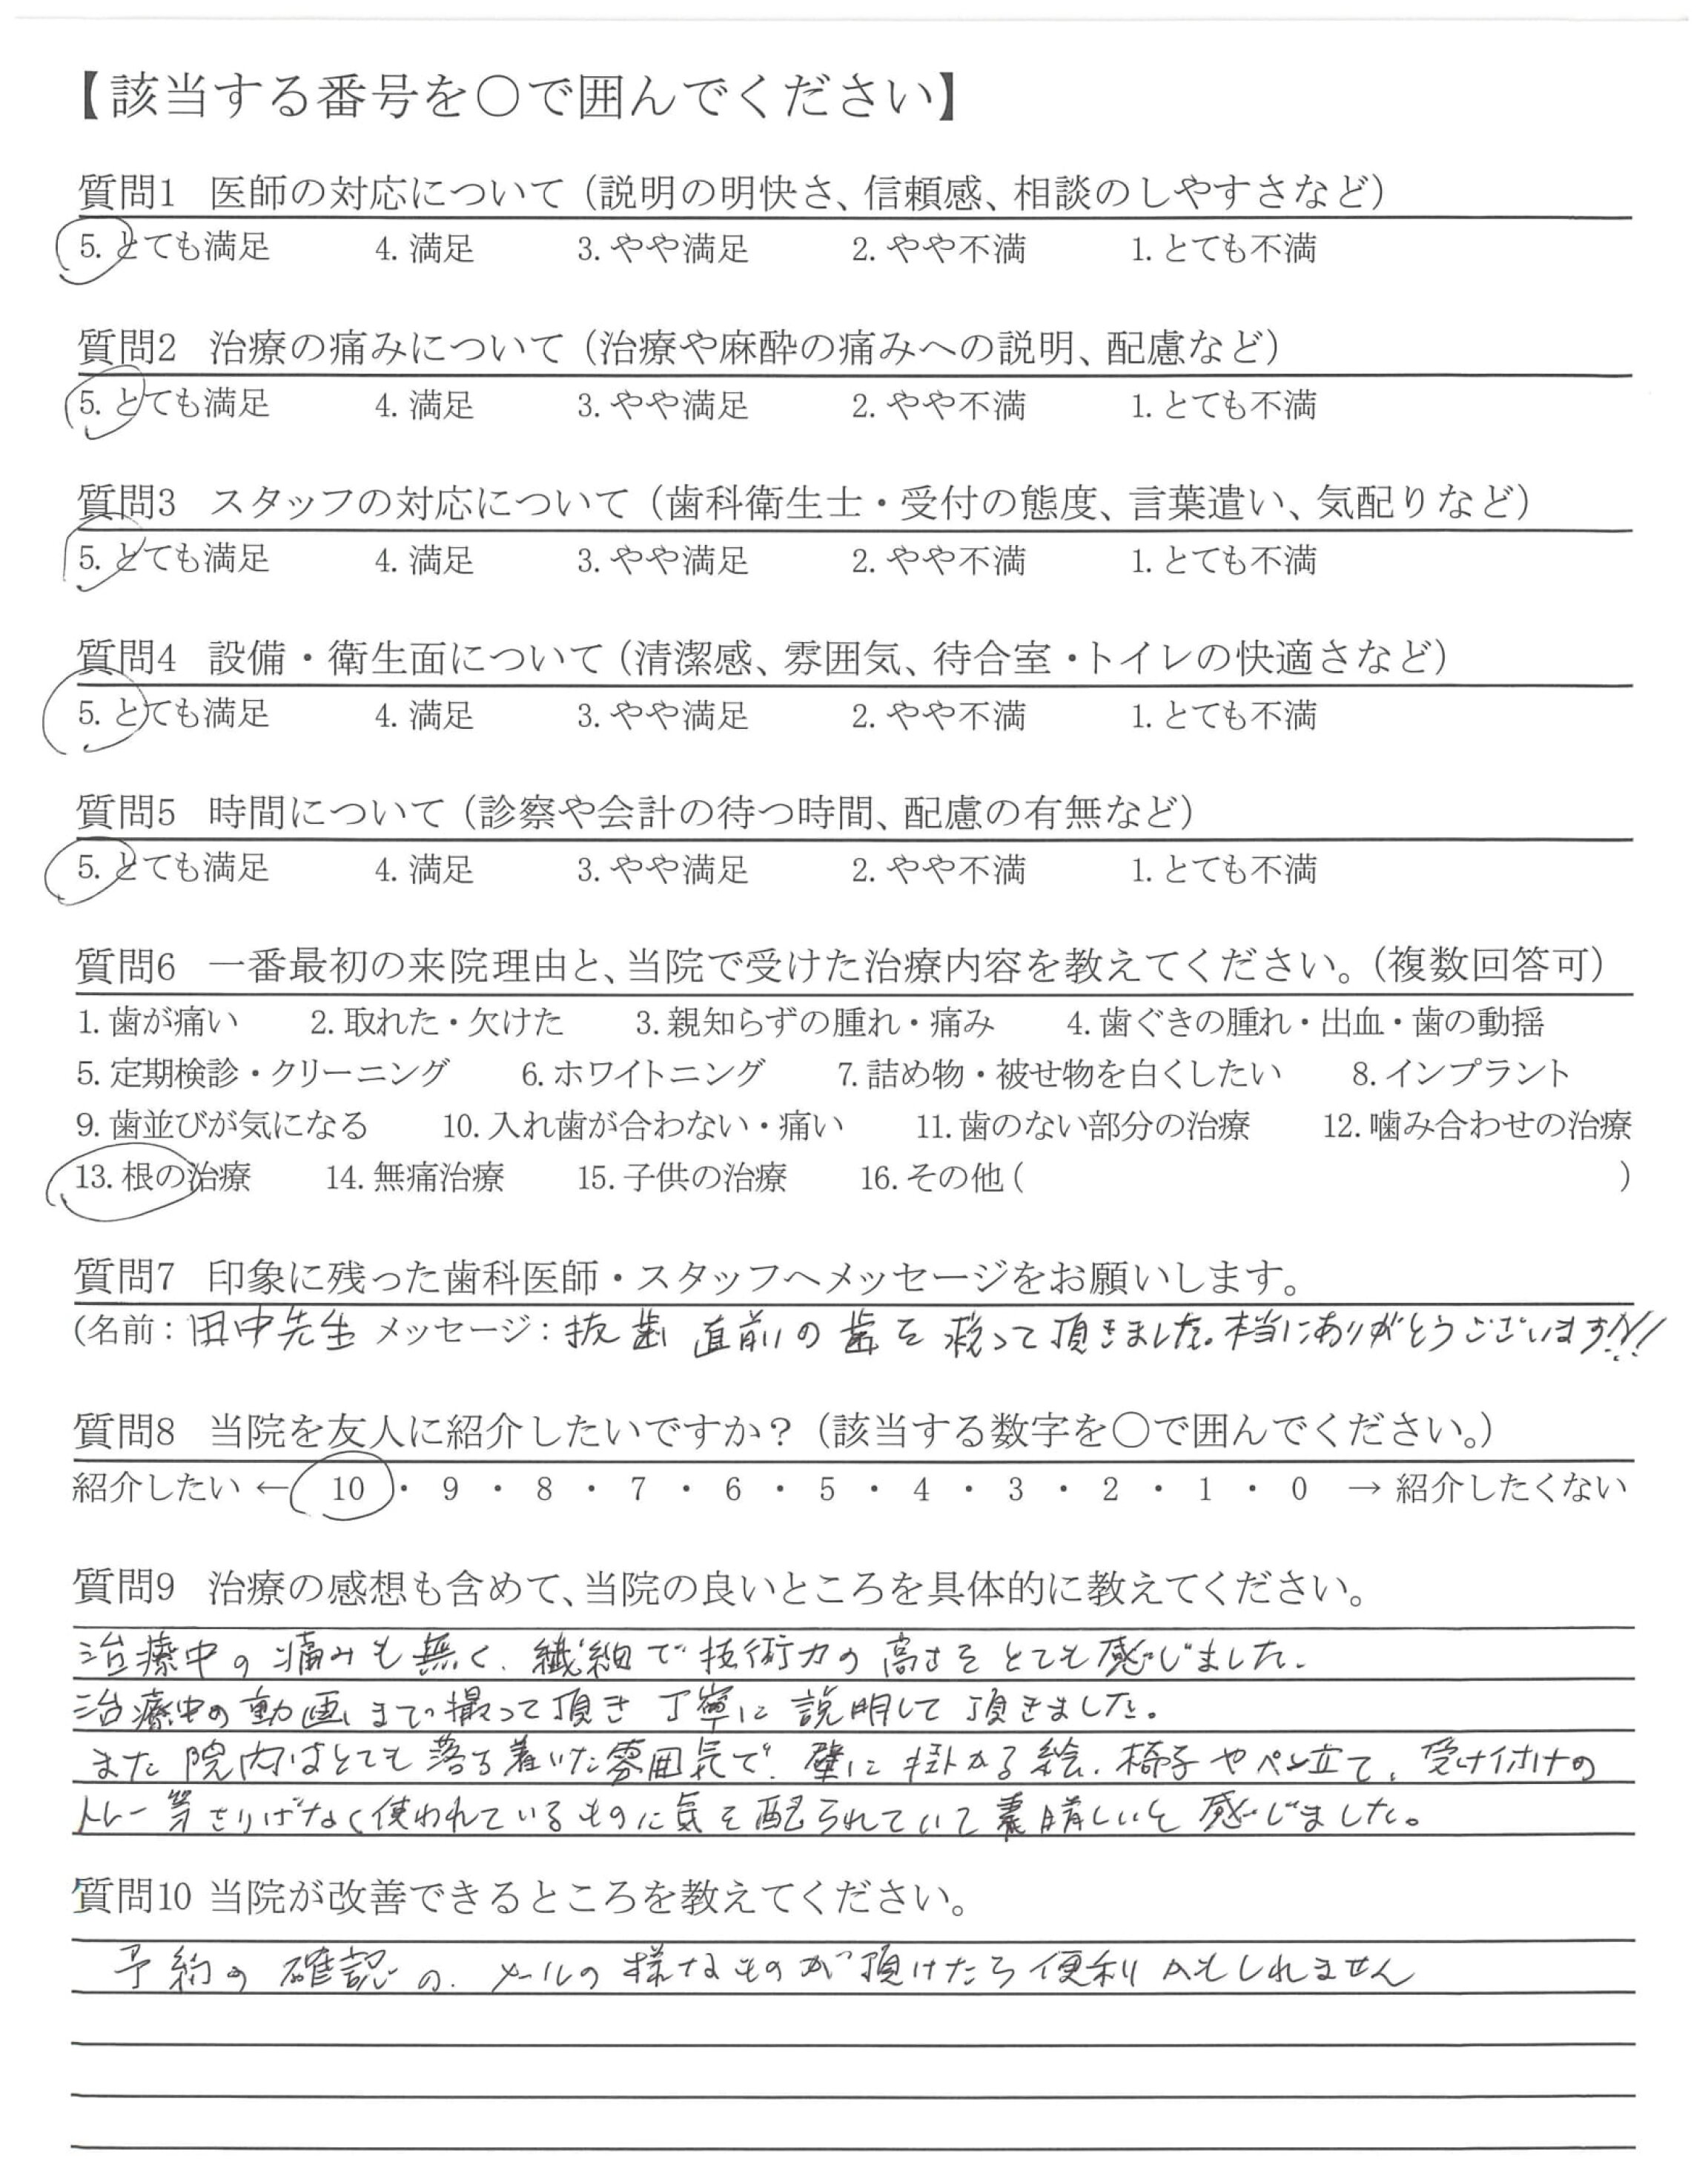 【該当する番号を〇で囲んでください】
質問1 医師の対応について（説明の明快さ、信頼感、相談のしやすさなど）
5. とても満足 4. 満足 3. やや満足 2. やや不満 1. とても不満
質問2 治療の痛みについて（治療や麻酔の痛みへの説明、配慮など）
5. とても満足 4. 満足 3. やや満足 2. やや不満 1. とても不満
質問3 スタッフの対応について（歯科衛生士・受付の態度、言葉遣い、気配りなど）
5. とても満足 4. 満足 3. やや満足 2. やや不満 1. とても不満
質問4 設備・衛生面について（清潔感、雰囲気、待合室・トイレの快適さなど）
5. とても満足 4. 満足 3. やや満足 2. やや不満 1. とても不満
質問5 時間について（診察や会計の待つ時間、配慮の有無など）
5. とても満足 4. 満足 3. やや満足 2. やや不満 1. とても不満
質問6 一番最初の来院理由と、当院で受けた治療内容を教えてください。（複数回答可）
1. 歯が痛い 2. 取れた・欠けた 3. 親知らずの腫れ・痛み 4. 歯ぐきの腫れ・出血・歯の動揺
5. 定期検診・クリーニング 6. ホワイトニング 7. 詰め物・被せ物を白くしたい 8. インプラント
9. 歯並びが気になる 10. 入れ歯が合わない・痛い 11. 歯のない部分の治療 12. 噛み合わせの治療
13. 根の治療 14. 無痛治療 15. 子供の治療 16. その他（ ）
質問7 印象に残った歯科医師・スタッフへメッセージをお願いします。
（名前：田中先生 メッセージ：抜歯直前の歯を救って頂きました。本当にありがとうございます!!!
質問8 当院を友人に紹介したいですか？（該当する数字を〇で囲んでください。）
紹介したい ← 10 ・ 9 ・ 8 ・ 7 ・ 6 ・ 5 ・ 4 ・ 3 ・ 2 ・ 1 ・ 0 → 紹介したくない
質問9 治療の感想も含めて、当院の良いところを具体的に教えてください。
治療中の痛みも無く、繊細で技術力の高さをとても感じました。
治療中の動画まで撮って頂き丁寧に説明して頂きました。
また院内はとても落ち着いた雰囲気で、壁に掛かる絵、椅子やペン立て、受け付けの
トレー等さりげなく使われているものに気を配られていて素晴しいと感じました。
質問10 当院が改善できるところを教えてください。
予約の確認の、メールの様なものが頂けたら便利かもしれません